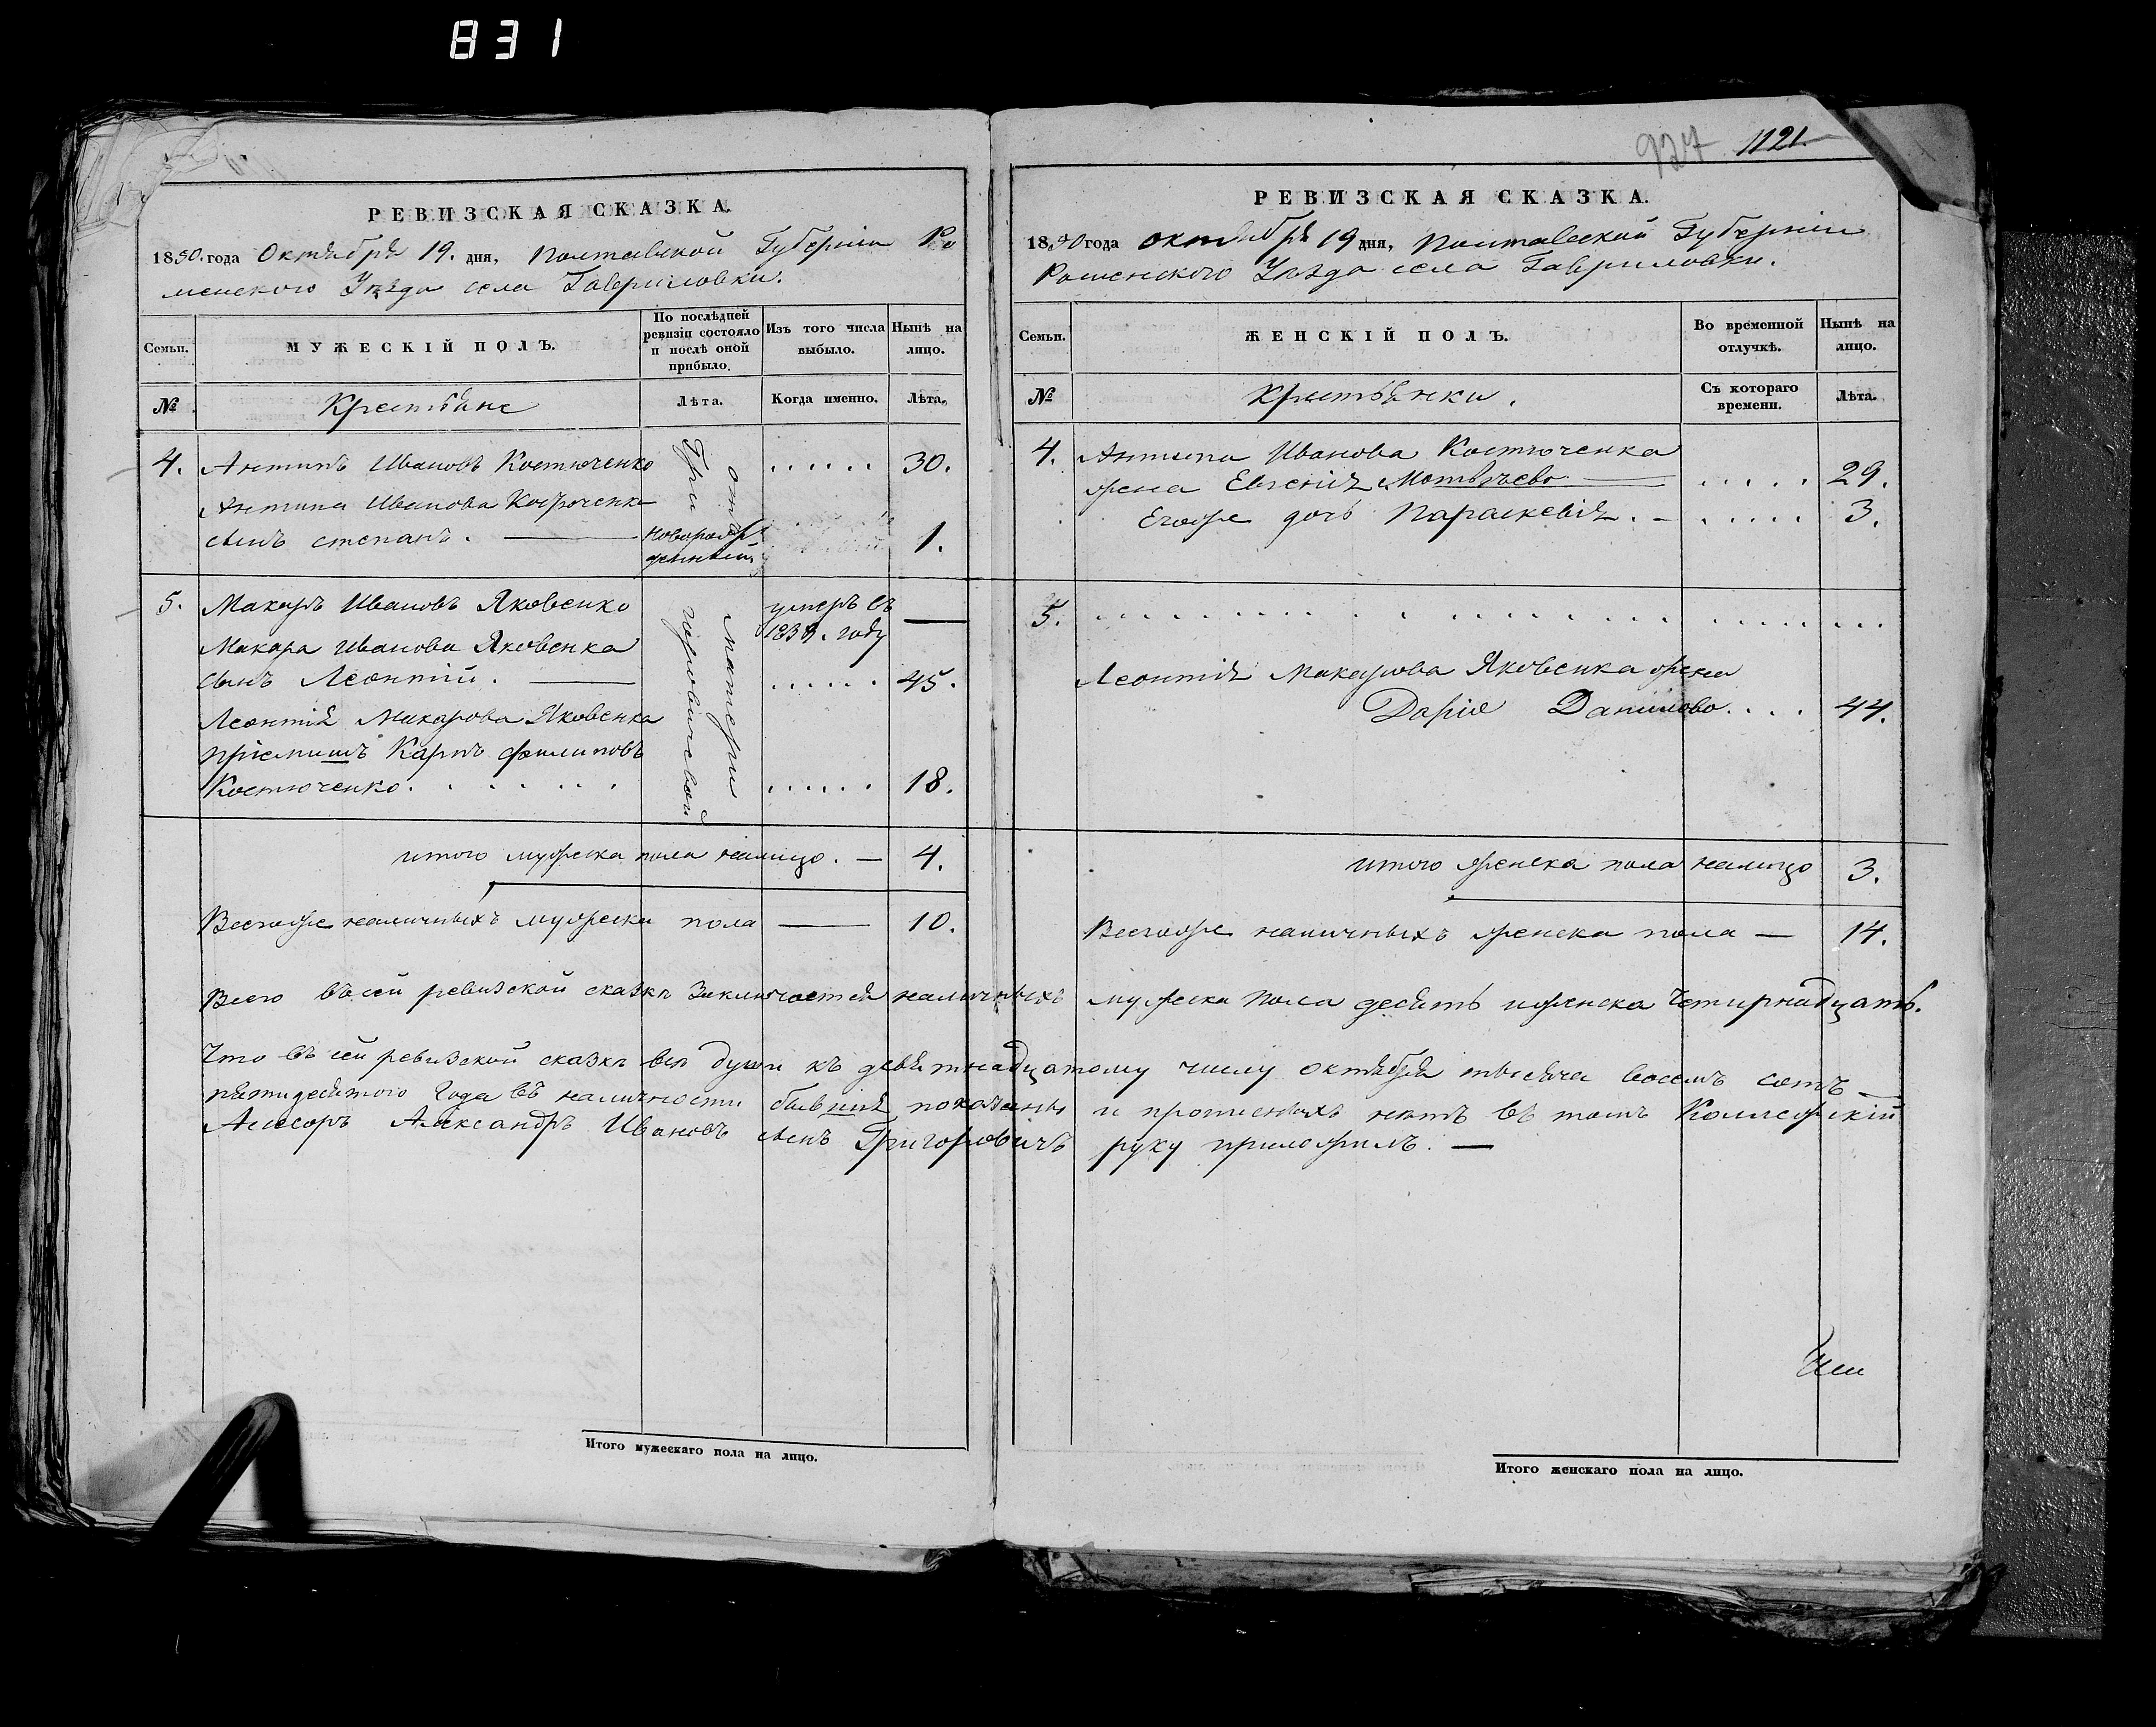 831
927 1121.
РЕВИЗСКАЯ СКАЗКА.
1850. года Октября 19. дня, Полтавской Губерніи Ро
менского Уѣзда села Гавриловки.
Семьи.
МУЖЕСКІЙ ПОЛЪ.
По послѣдней ревизіи состояло и послѣ оной прибыло.
Изъ того числа выбыло.
Нынѣ на лицо.
№
Крестьяне
Лѣта.
Когда именно.
Лѣта.
4. Антипъ Ивановъ Костюченко . . . . . . 30.
Антипа Иванова Костюченка
сынъ степанъ. — новорож
денный 1.
5. Макаръ Ивановъ Яковенко умеръ въ
1839. году —
Макара Иванова Яковенка
сынъ Леонтій. — . . . . . . 45.
Леонтія Макарова Яковенка
пріемишъ Карпъ филиповъ
Костюченко. . . . . . . . . . . . . 18.
отъ матери
Григоровичевой
итого мужеска пола налицо. — 4.
Всегоже наличныхъ мужеска пола — 10.
РЕВИЗСКАЯ СКАЗКА.
1850 года октября 19 дня, Полтавской Губерніи
Роменского Уѣзда села Гавриловки.
Семьи.
ЖЕНСКІЙ ПОЛЪ.
Во временной отлучкѣ.
Нынѣ на лицо.
№
Крестьянки.
Съ котораго времени.
Лѣта.
4. Антипа Иванова Костюченка
жена Евгенія Мотвѣева — . . . . . 29.
Егоже дочь Параскевія. — . . . . . 3.
5. . . . . . . . . . . . . . . . . . . . . . . .
Леонтія Макарова Яковенка жена
Дарія Данилова. . . . 44.
итого женска пола налицо 3.
Всегоже наличныхъ женска пола — 14.
Всего въ сей ревизской сказкѣ Заключается наличныхъ мужеска пола десять и женска Четирнадцать.
Что въ сей ревизской сказкѣ всѣ души къ девятнадцатому числу октября тысяча восемь сотъ —
пятидесятого Года въ наличности бывшія показаны и прописныхъ нѣтъ въ томъ Коллежскій
Асесоръ Александръ Ивановъ сынъ Григоровичъ руку приложилъ. —
Итого мужескаго пола на лицо.
Итого женскаго пола на лицо.